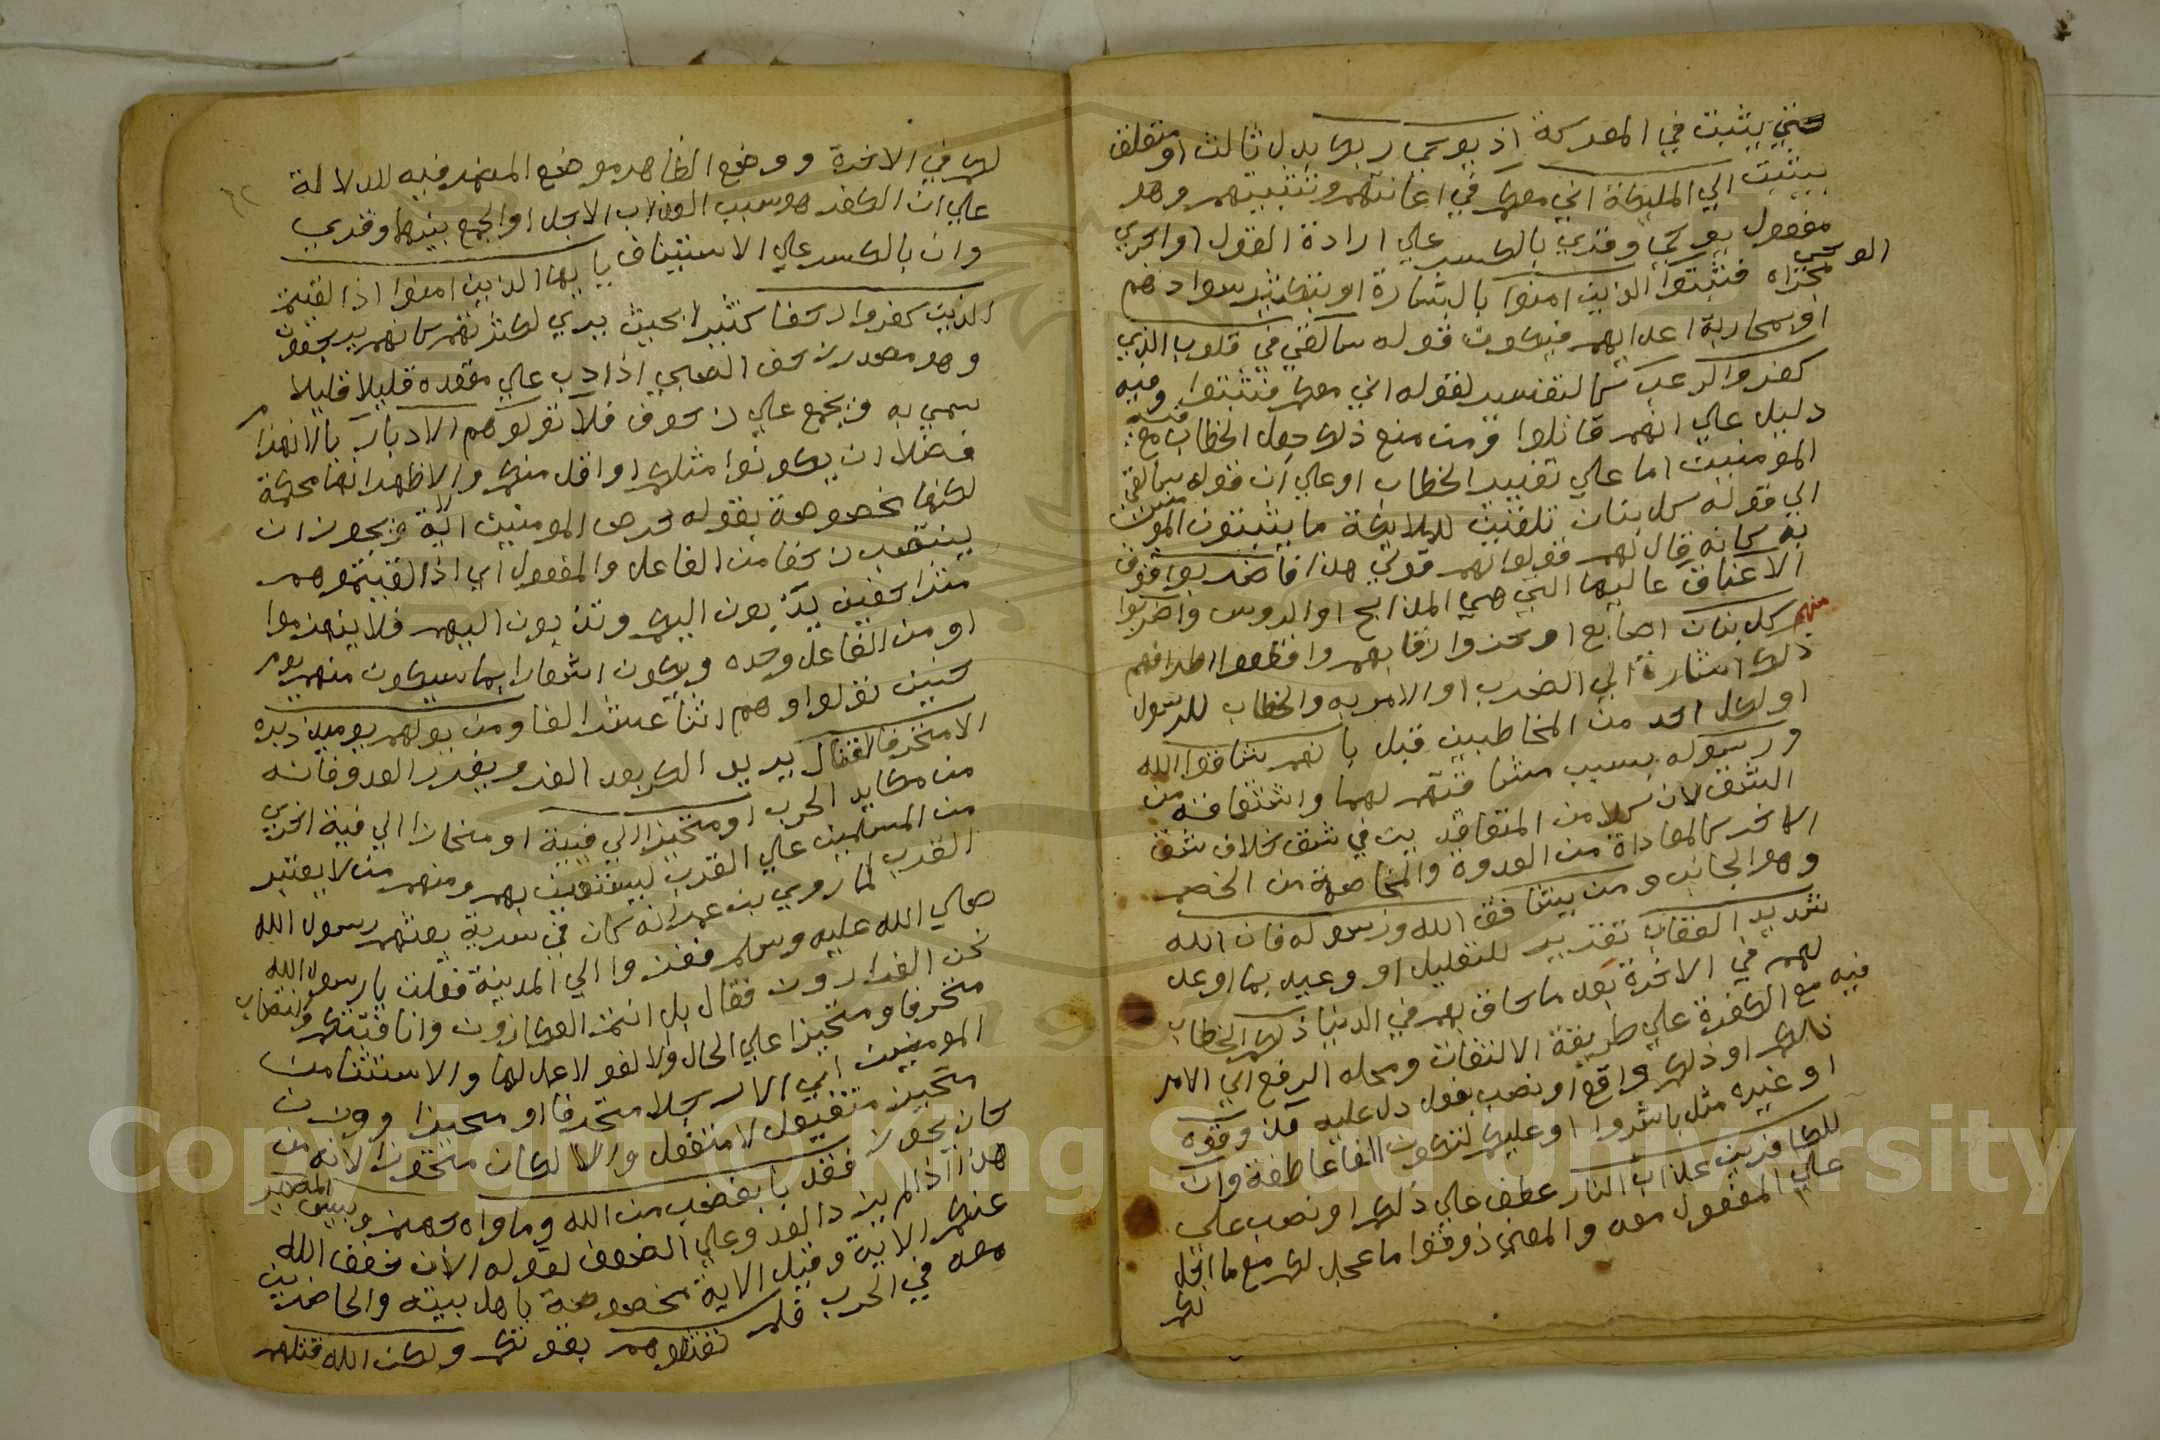 حتي يثبت في المعركة اذ يوحي ربك بدل ثالث او متعلق
بيثبت الي المليكة اني معكم في اعانتهم وتثبيتهم وهو
مفعول يوحي وقري بالكسر علي ارادة القول او اجري الوحي
مجراه فثبتوا الذين امنوا بالبشارة او بتكثير سوادهم
او محاربة اعدايهم فيكون قوله سالقي في قلوب الذين
كفروا الرعب كالتفسير لقوله اني معكم فثبتوا وفيه
دليل علي انهم قاتلوا ومن منع ذلك جعل الخطاب فيه مع
المومنين اما علي تغيير الخطاب او علي ان قوله سالقي
الي قوله كل بنان تلقين للملايكة ما يثبتون المومنين
به كانه قال لهم قولوا لهم قولي هذا فاضربوا فوق
الاعناق عاليها التي هي المذابح او الروس واضربوا
منهم كل بنان اصابع او جزوا رقابهم واقطعوا اطرافهم
ذلك اشارة الي الضرب او الامر به والخطاب للرسول
او لكل احد من المخاطبين قبل بانهم شاقوا الله
ورسوله بسبب مشاقتهم لهما واشتقاقه من
الشق لان كلا من المتعاقدين في شق خلاف شق
الاخر كالمعاداة من العدوة والمخاصمة من الخصم
وهو الجانب ومن يشاقق الله ورسوله فان الله
شديد العقاب تقرير للتعليل او وعيد بما اوعد
لهم في الاخرة بعد ما حاق بهم في الدنيا ذلكم الخطاب
فيه مع الكفرة علي طريقة الالتفات ومحله الرفع اي الامر
ذلكم او ذلكم واقع او نصب بفعل دل عليه فذوقوه
او غيره مثل باشروا او عليكم لتكون الفا عاطفة وان
للكافرين عذاب النار عطف علي ذلكم او نصب علي
علي المفعول معه والمعني ذوقوا ما عجل لكم مع ما اجل
لكم
لكم في الاخرة ووضع الظاهر موضع المضمر فيه للدلالة
علي ان الكفر هو سبب العذاب الاجل او الجمع بينهما وقري
وان بالكسر علي الاستيناف يا ايها الذين امنوا اذا لقيتم
الذين كفروا زحفا كثيرا بحيث يري لكثرتهم كانهم يزحفون
وهو مصدر زحف الصبي اذا دب علي مقعده قليلا قليلا
سمي به وجمع علي زحوف فلا تولوهم الادبار بالانهزام
فضلا ان يكونوا مثلكم او اقل منكم والاظهر انها محكمة
لكنها مخصوصة بقوله حرص المومنين الاية ويجوز ان
ينتصب زحفا من الفاعل والمفعول اي اذا لقيتموهم
متزاحفين يدبون اليكم وتدبون اليهم فلا ينهزموا
او من الفاعل وحده ويكون اشعارا بما سيكون منهم يوم
حنين تولوا وهم اثنا عشر الفا ومن يولهم يوميذ دبره
الا متحرفا لقتال يريد الكر بعد الفر ويغرر العدو فانه
من مكايد الحرب او متحيزا الي فيية او منحازا الي فية اخري
من المسلمين علي القرب ليستعين بهم ومنهم من لا يعتبر
القرب لما روي بن عمر انه كان في سرية بعثهم رسول الله
صلي الله عليه وسلم ففروا الي المدينة فقلت يا رسول الله
نحن الفرارون فقال بل انتم العكارون وانا فيتكم وانتصاب
متحرفا ومتحيزا علي الحال والا لغو لا عمل لها والاستثنا من
المومنين اي الا رجلا متحرفا او متحيزا ووزن
متحيز متفيعل لا متفعل والا لكان متحوزا لانه من
حاز يحوز فقد با بغضب من الله وماواه جهنم وبيس المصير
هذا اذا لم يزد العدو علي الضعف لقوله الان خفف الله
عنكم الاية وقيل الاية مخصوصة باهل بيته والحاضرين
معه في الحرب فلم تقتلوهم بقوتكم ولكن الله قتلهم
Copyright © King Saud University